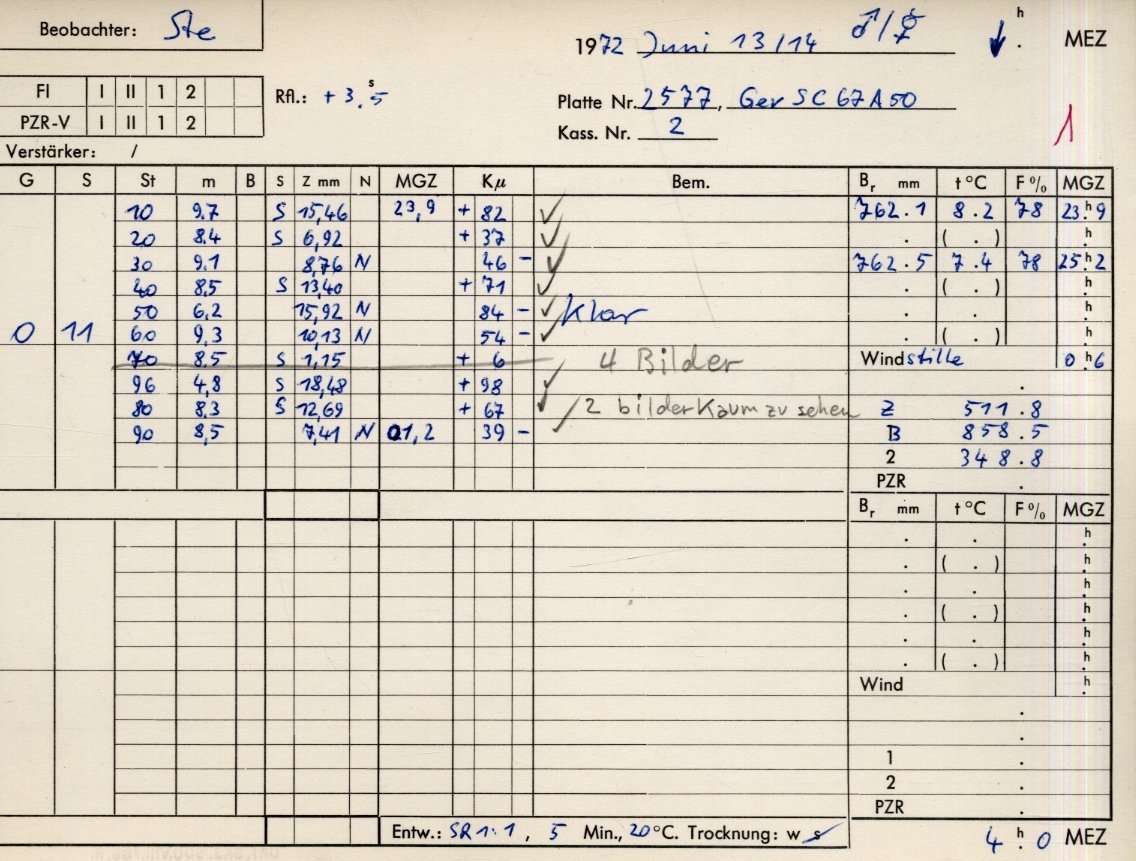 Beobachter: Ste
1972 Juni 13/14 ♂/☿ ↓ h . MEZ
FI I II 1 2
PZR-V I II 1 2
Rfl.: + 3.s5
Platte Nr. 2577, Ger SC 67A50
Kass. Nr. 2
1
Verstärker: /
G S St m B S Z mm N MGZ Kμ Bem. Br mm t °C F % MGZ
10 9.7 S 15,46 23,9 + 82 ✓ 762.1 8.2 78 23.h9
20 8.4 S 6,92 + 37 ✓ . ( . ) .h
30 9.1 8,76 N 46 - ✓ 762.5 7.4 78 25.h2
40 8,5 S 13,40 + 71 ✓ . ( . ) .h
50 6,2 15,92 N 84 - ✓ Klar . . .h
0 11 60 9,3 10,13 N 54 - ✓ . ( . ) .h
70 8.5 S 1,15 + 6 4 Bilder Windstille 0.h6
96 4,8 S 18,48 + 98 ✓ .
80 8.3 S 12,69 + 67 ✓ 2 bilder Kaum zu sehen Z 511.8
90 8,5 7,41 N 01,2 39 - ✓ B 858.5
2 348.8
PZR .
Br mm t °C F % MGZ
. . .h
. ( . ) .h
. . .h
. ( . ) .h
. . .h
. ( . ) .h
Wind .h
.
.
1 .
2 .
PZR .
Entw.: SR 1:1, 5 Min., 20 °C. Trocknung: w s
4 h. 0 MEZ